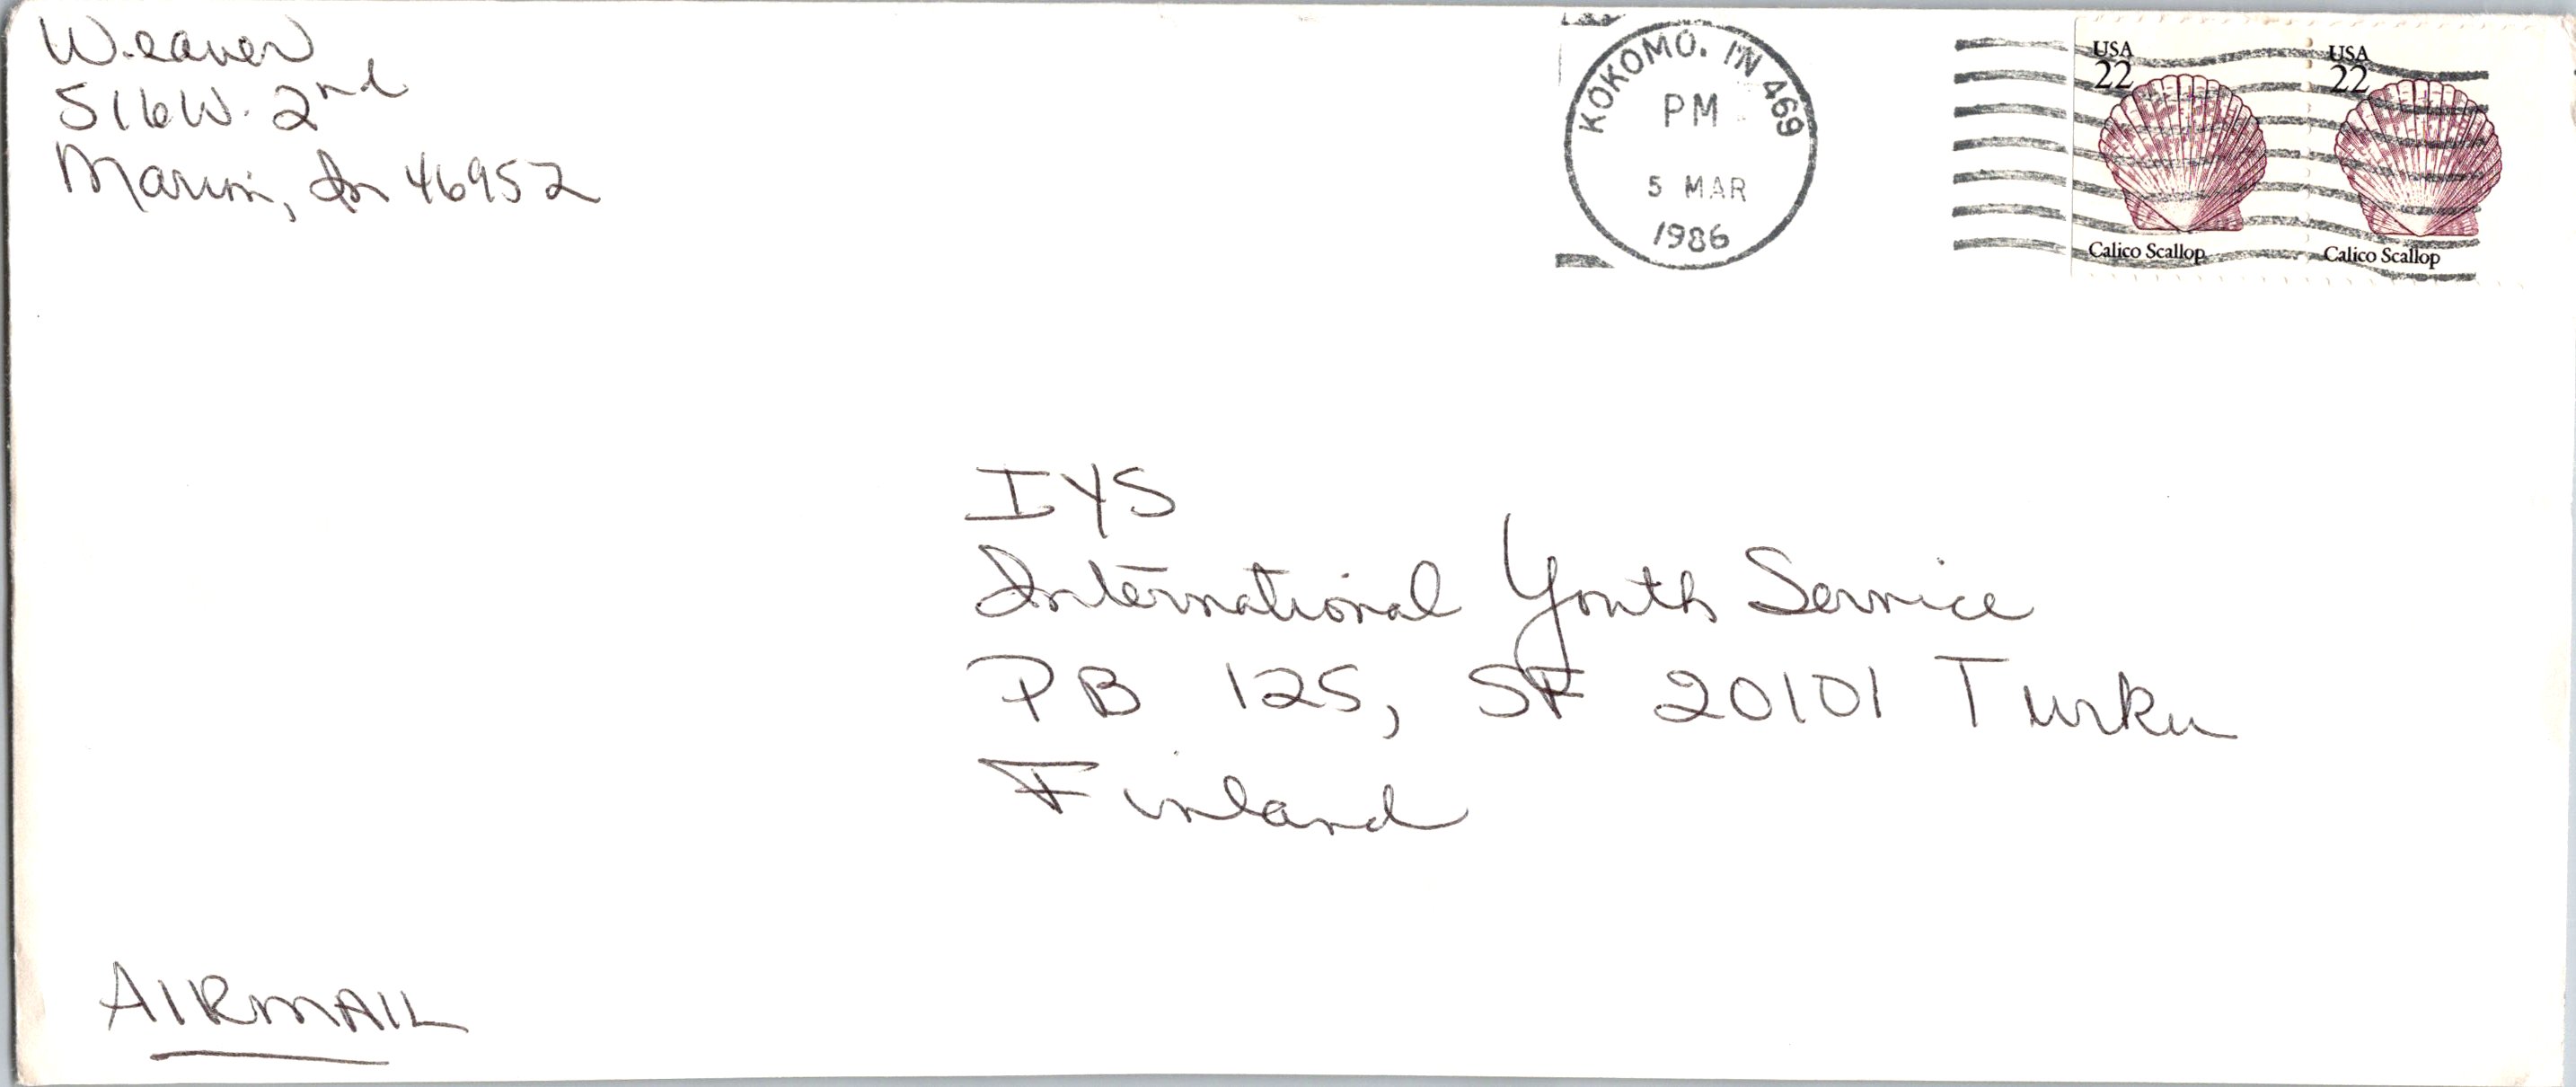 Weaver
516 W. 2nd
Marion, In 46952
KOKOMO. IN 469
PM
5 MAR
1986
USA
22
Calico Scallop
USA
22
Calico Scallop
IYS
International Youth Service
PB 125, SF 20101 Turku
Finland
AIRMAIL